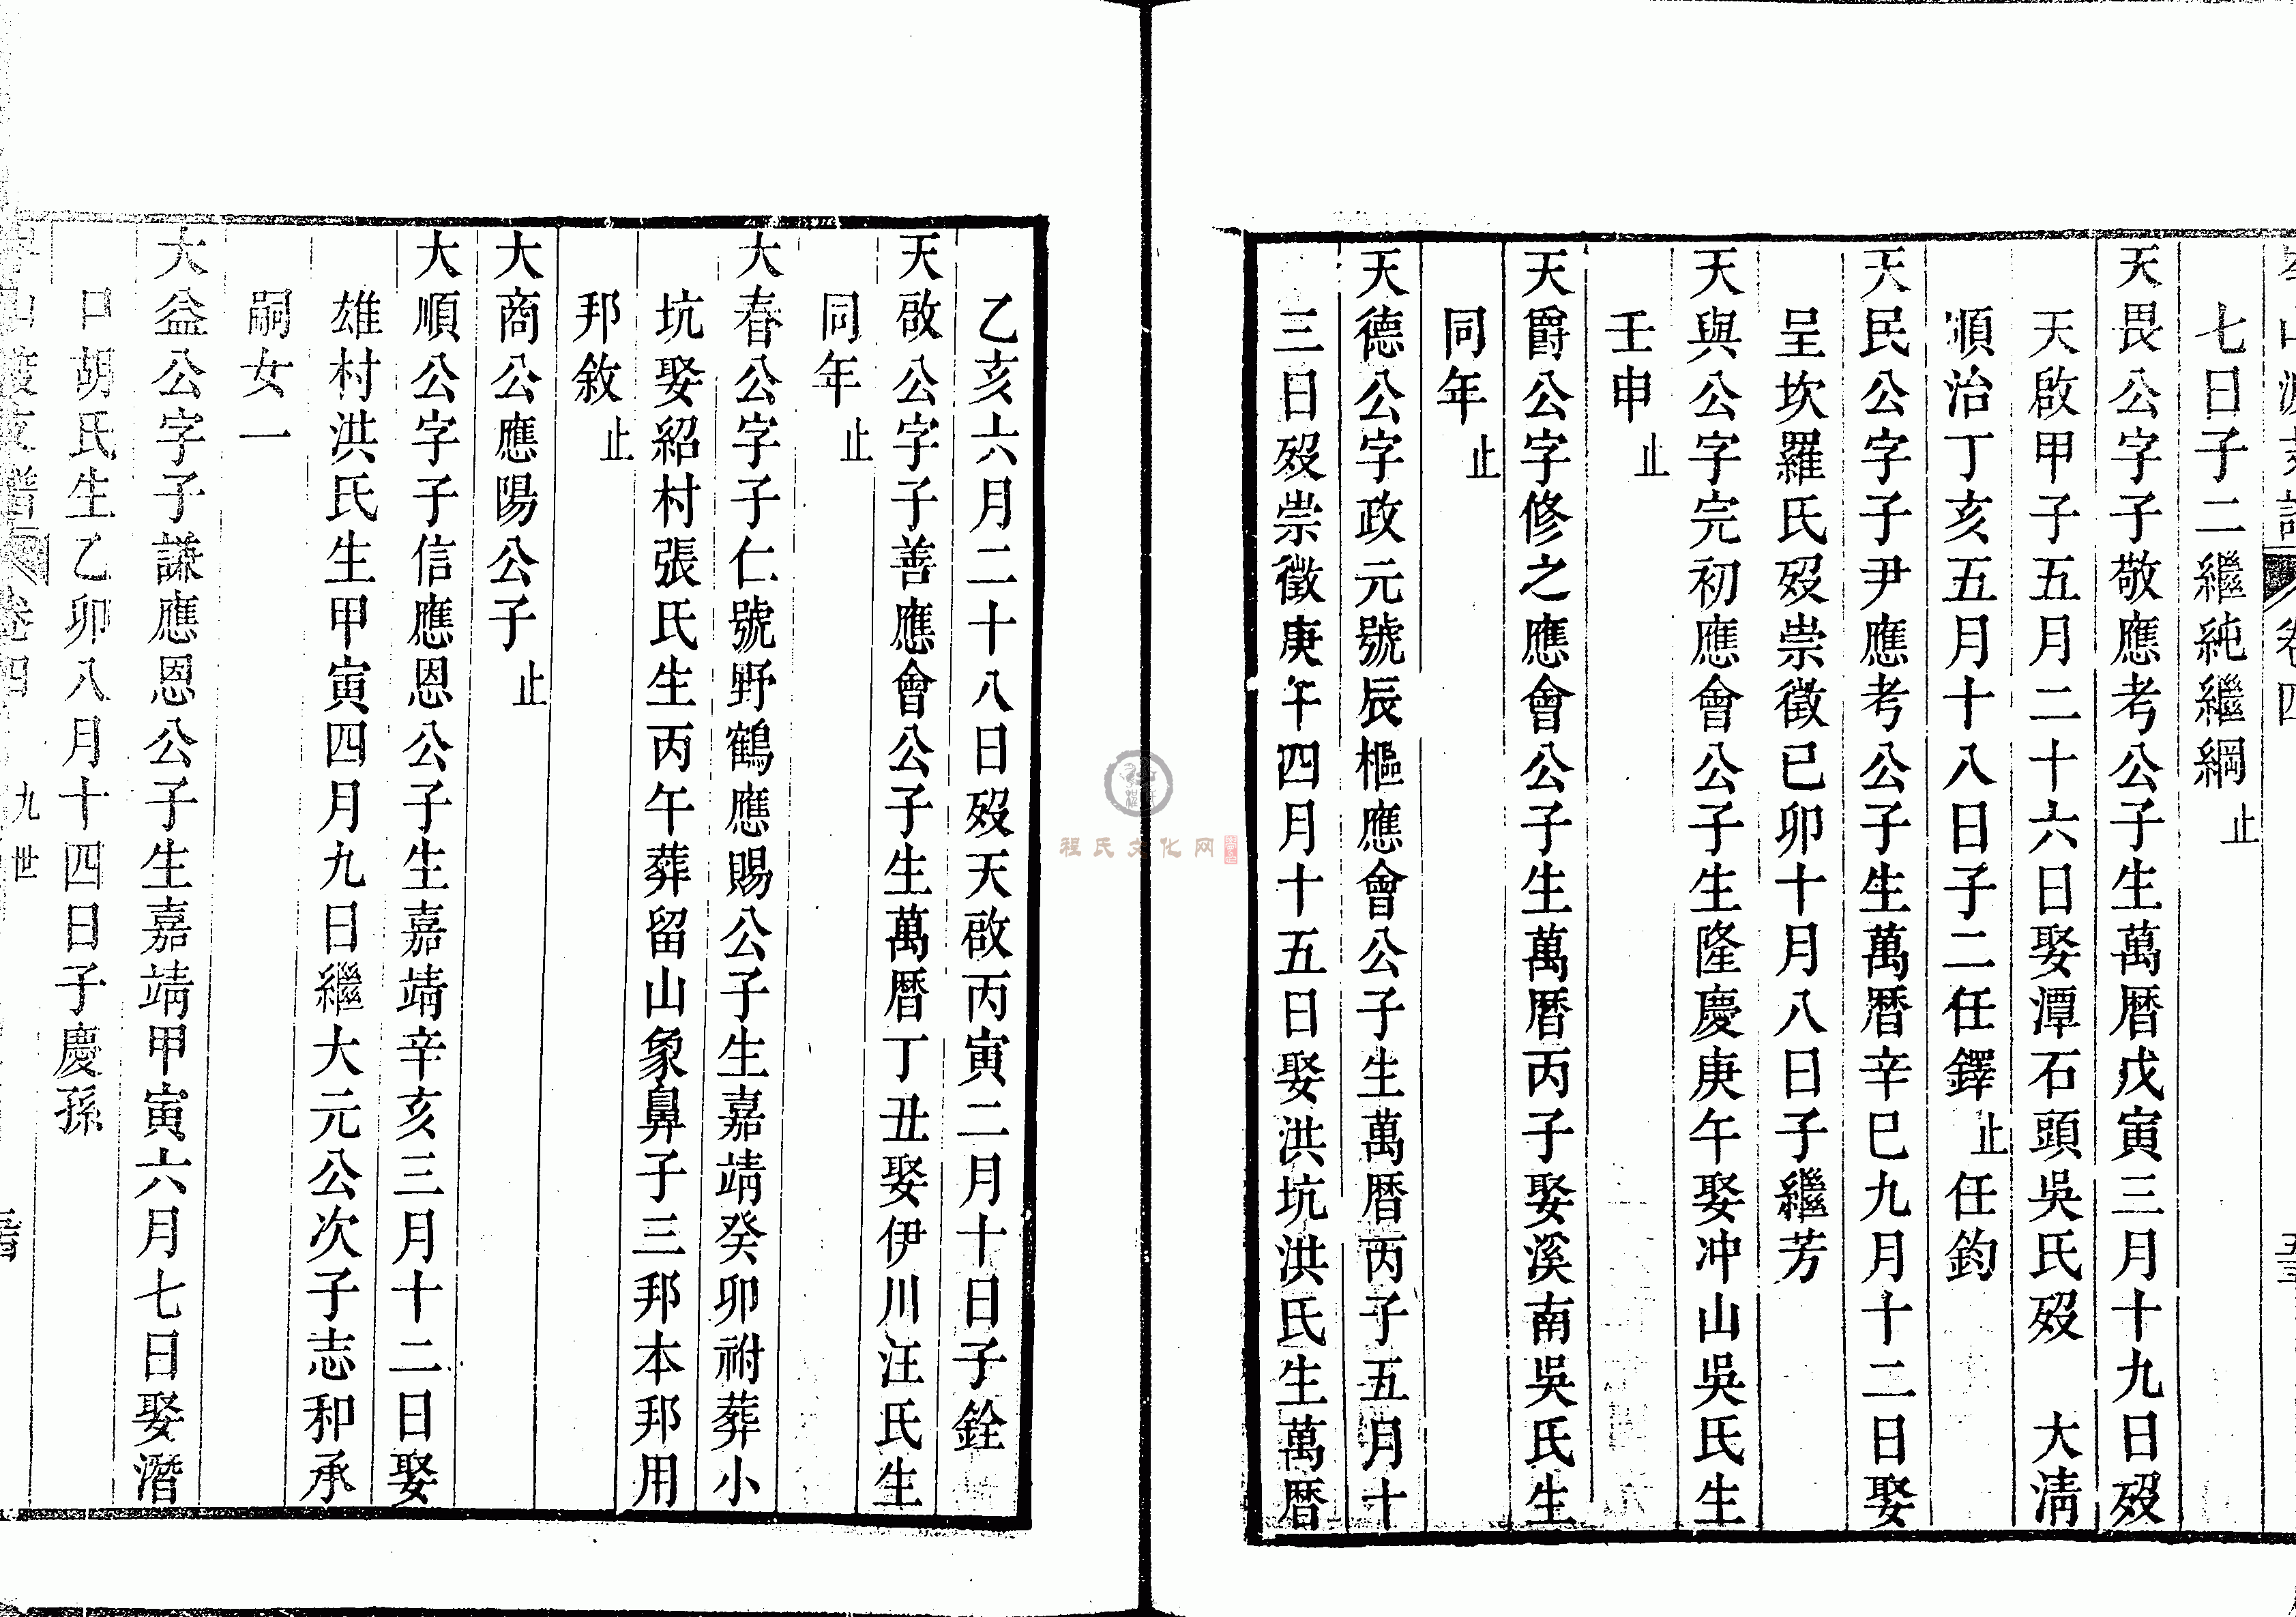 山渡支譜 卷四 五三
七日子二繼純繼綱止
天畏公字子敬應考公子生萬曆戊寅三月十九日歿
天啟甲子五月二十六日娶潭石頭吳氏歿 大清
順治丁亥五月十八日子二任鐸止任鈞
天民公字子尹應考公子生萬曆辛巳九月十二日娶
呈坎羅氏歿崇徵已卯十月八日子繼芳
天與公字完初應會公子生隆慶庚午娶冲山吳氏生
壬申止
天爵公字修之應會公子生萬曆丙子娶溪南吳氏生
同年止
天德公字政元號辰樞應會公子生萬曆丙子五月十
三日歿崇徵庚午四月十五日娶洪坑洪氏生萬曆
乙亥六月二十八日歿天啟丙寅二月十日子銓
天啟公字子善應會公子生萬曆丁丑娶伊川汪氏生
同年止
大春公字子仁號野鶴應賜公子生嘉靖癸卯祔葬小
坑娶紹村張氏生丙午葬留山象鼻子三邦本邦用
邦敘止
大商公應陽公子止
大順公字子信應恩公子生嘉靖辛亥三月十二日娶
雄村洪氏生甲寅四月九日繼大元公次子志和承
嗣女一
大益公字子謙應恩公子生嘉靖甲寅六月七日娶潛
口胡氏生乙卯八月十四日子慶孫
山渡支譜 卷四 九世
程氏文化网